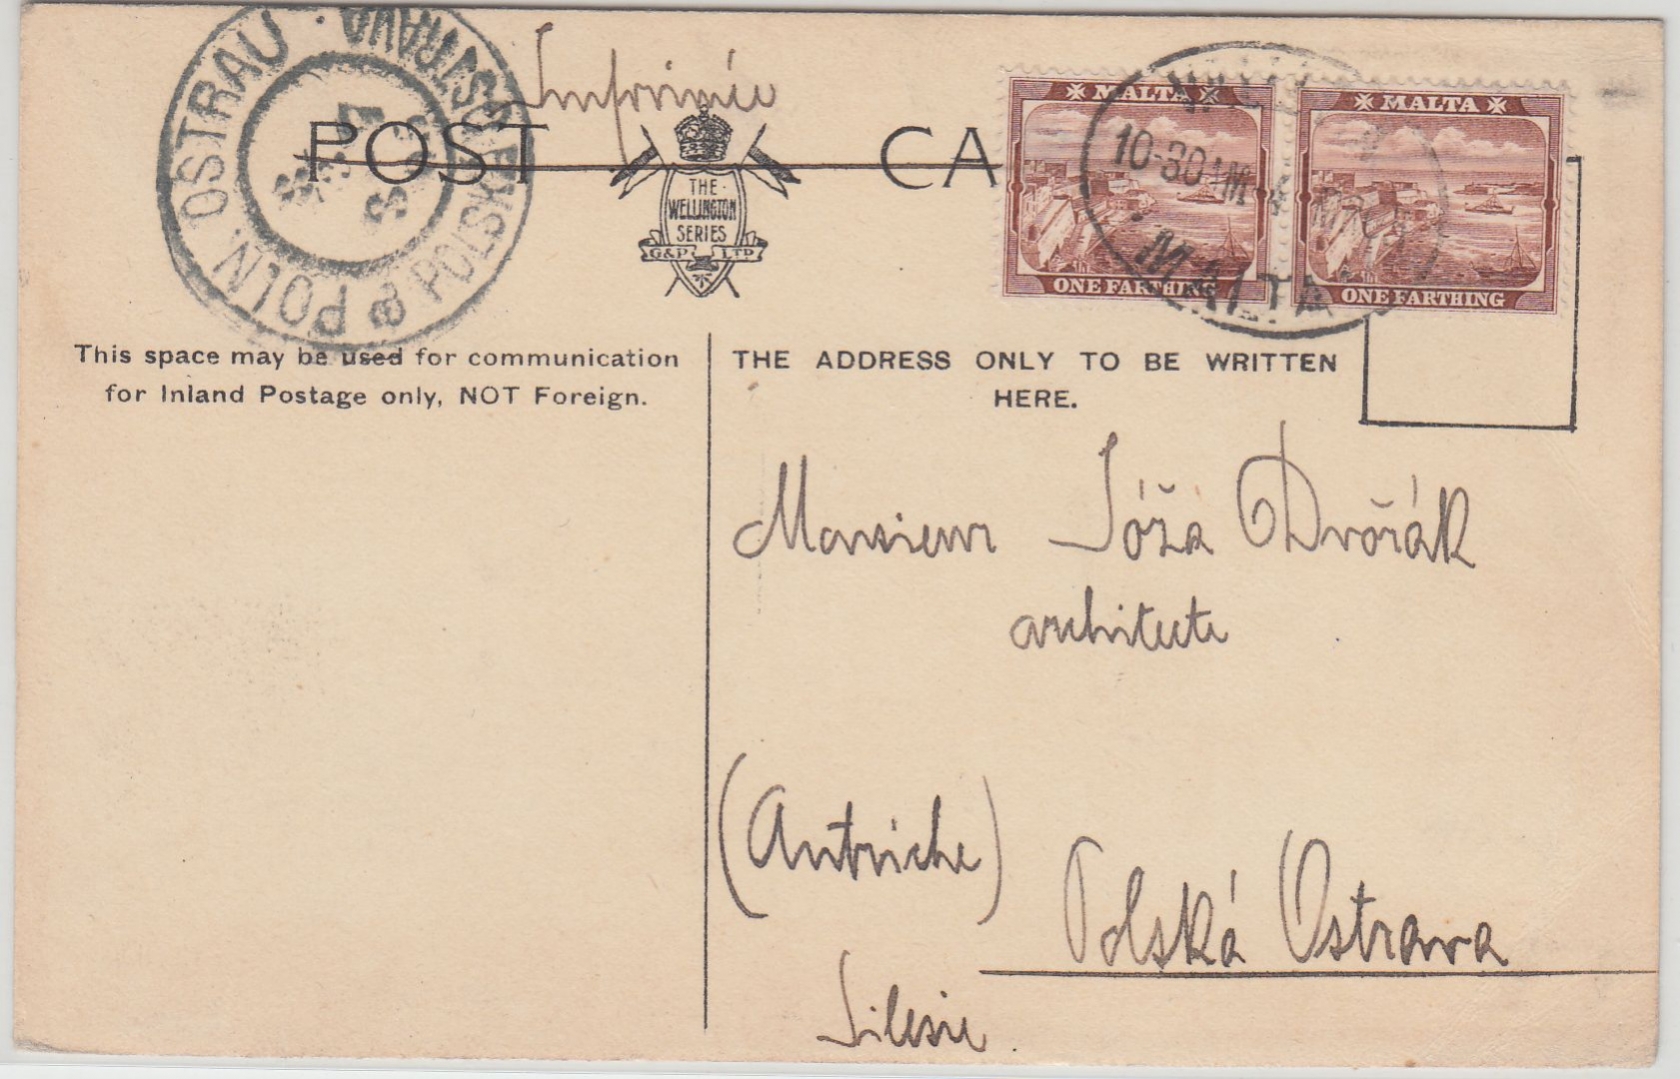 Imprimée
POST CA
THE
WELLINGTON
SERIES
G&P LTD
POLN. OSTRAU
POLSKÁ OSTRAVA
MALTA
ONE FARTHING
MALTA
ONE FARTHING
10-30 AM
MALTA
This space may be used for communication
for Inland Postage only, NOT Foreign.
THE ADDRESS ONLY TO BE WRITTEN
HERE.
Monsieur Jóža Dvořák
architecte
(Autriche)
Polská Ostrava
Silesie